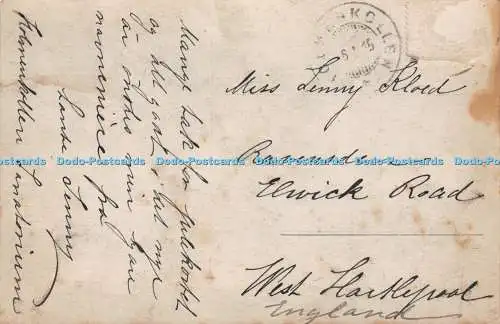 Mange tak for julekortet
og alt godt i det nye
år ønskes min kjære
navnemøie fra
Tante Jenny
Holmenkollen Sanatorium
HOLMENKOLLEN
Miss Jenny Kloed
Elwick Road
West Hartlepool
England
Dodo-Postcards Dodo-Postcards Dodo-Postcards Dodo-Postcards Dodo-Postcards Dodo-Postcards